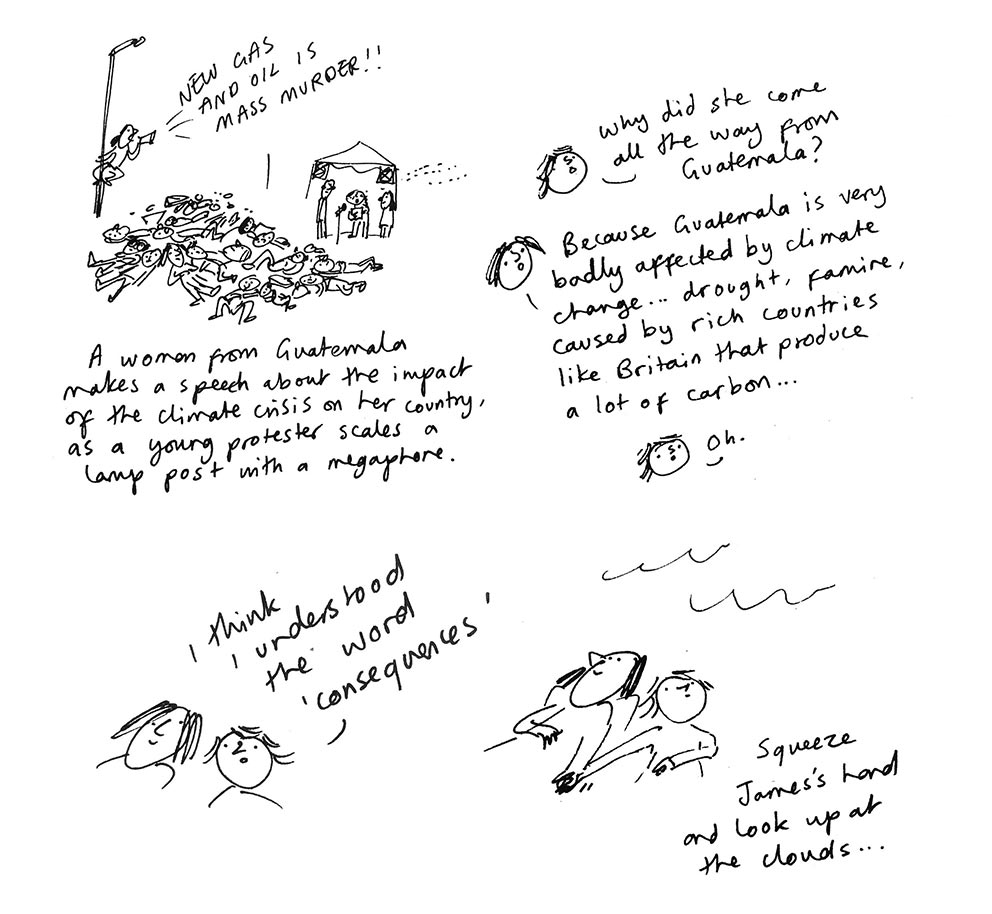 NEW GAS
AND OIL IS
MASS MURDER!!
A woman from Guatemala
makes a speech about the impact
of the climate crisis on her country,
as a young protester scales a
lamp post with a megaphone.
Why did she come
all the way from
Guatemala?
Because Guatemala is very
badly affected by climate
change... drought, famine,
caused by rich countries
like Britain that produce
a lot of carbon...
Oh.
I think
I understood
the word
'consequences'
Squeeze
James's hand
and look up at
the clouds...